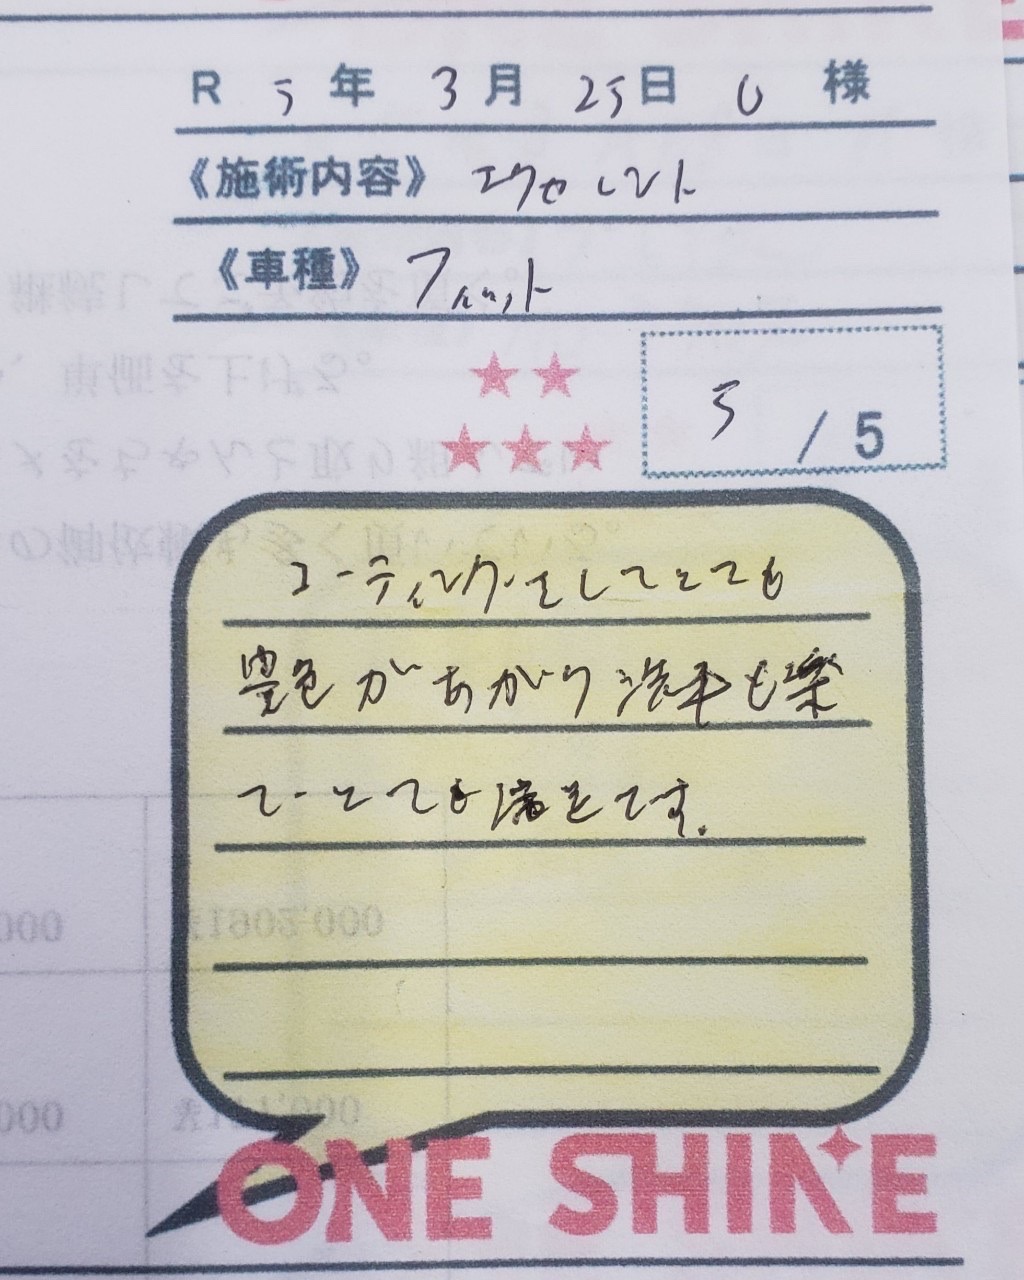 R 5年 3月 25日 U 様
《施術内容》 エクセレント
《車種》 フィット
5 / 5
コーティングをしてとても
艶色があがり洗車も楽
で とても満足です.
₩1902,000
000
000
ONE SHINE